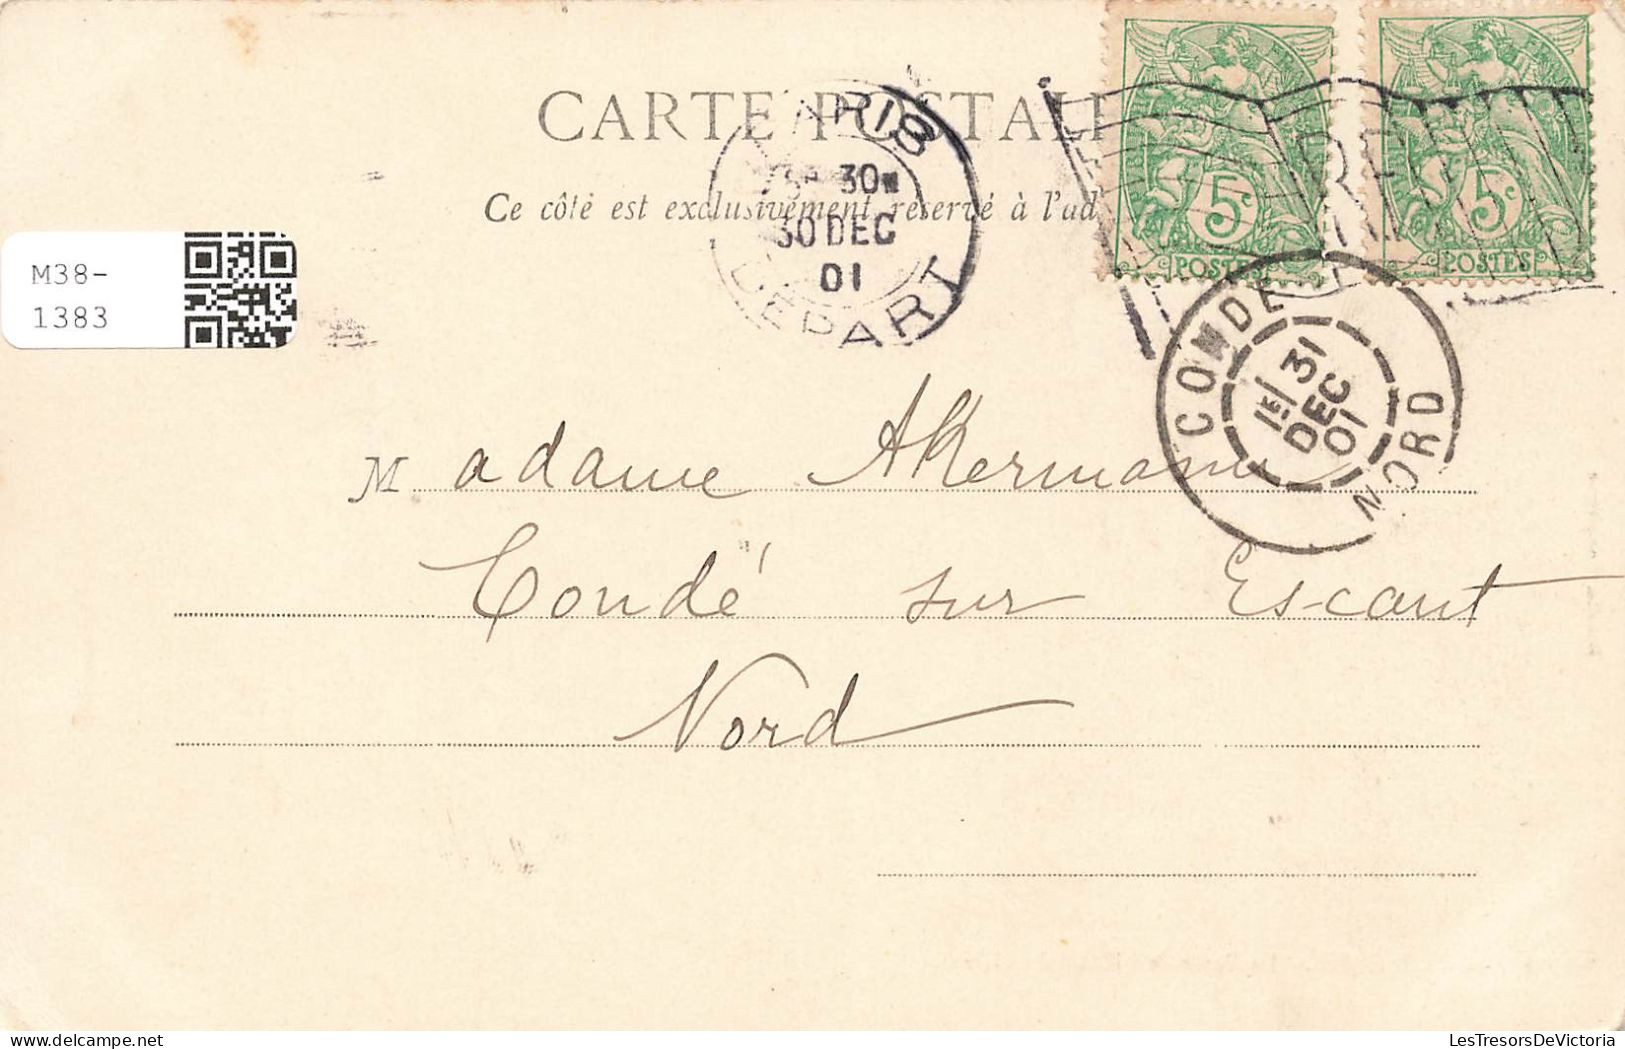 CARTE POSTALE
Ce côté est exclusivement réservé à l'ad
PARIS
30
30 DEC
01
DEPART
5c
POSTES
5c
POSTES
RF
CONDE
1E/ 31
DEC
01
NORD
M38-
1383
Madame Akermann
Condé sur Escaut
Nord
LesTresorsDeVictoria